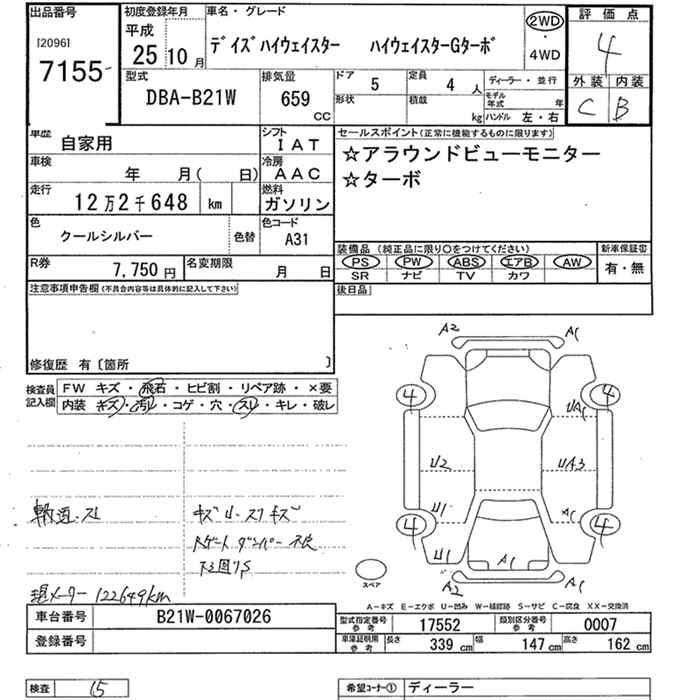 出品番号
[2096]
7155
初度登録年月
平成
25 10 月
車名・グレード
デイズハイウェイスター ハイウェイスターGターボ
2WD
・
4WD
評価点
4
外装 内装
C B
型式
DBA-B21W
排気量
659
CC
ドア 5
定員 4 人
ディーラー・並行
形状
積載 kg
モデル年式 年
ハンドル 左・右
車歴 自家用
シフト IAT
車検 年 月( 日)
冷房 AAC
走行 12万2千648 km
燃料 ガソリン
色 クールシルバー
色替
色コード A31
R券 7,750円
名変期限 月 日
セールスポイント(正常に機能するものに限ります)
☆アラウンドビューモニター
☆ターボ
装備品 (純正品に限り〇をつけてください)
PS PW ABS エアB AW
SR ナビ TV カワ
新車保証書
有・無
後日品
注意事項申告欄(不具合内容等は具体的に記入して下さい)
修復歴 有〔箇所 〕
検査員記入欄
FW キズ・飛石・ヒビ割・リペア跡・×要
内装 キズ・汚レ・コゲ・穴・スレ・キレ・破レ
現メーター 122649km
A2 A1
4 4
UA1
U2 UA3
U1 A1
4 4
U1 A1
A2 A1
スペア
A-キズ E-エクボ U-凹み W-補修跡 S-サビ C-腐食 XX-交換済
車台番号 B21W-0067026
登録番号
型式指定番号 参考 17552
類別区分番号 参考 0007
車庫証明用 参考 長さ 339 cm 幅 147 cm 高さ 162 cm
検査 15
希望コーナー① ディーラー